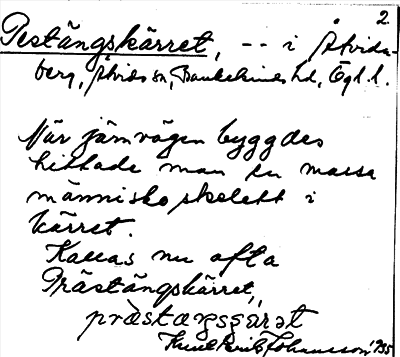 2.
Pestängskärret, -- i Åtvida-
berg, Åtvids sn, Bankekinds hd, Ögl. l.
När järnvägen byggdes
hittade man en massa
människoskelett i
kärret.
Kallas nu ofta
Prästängskärret,
Johansson 1935